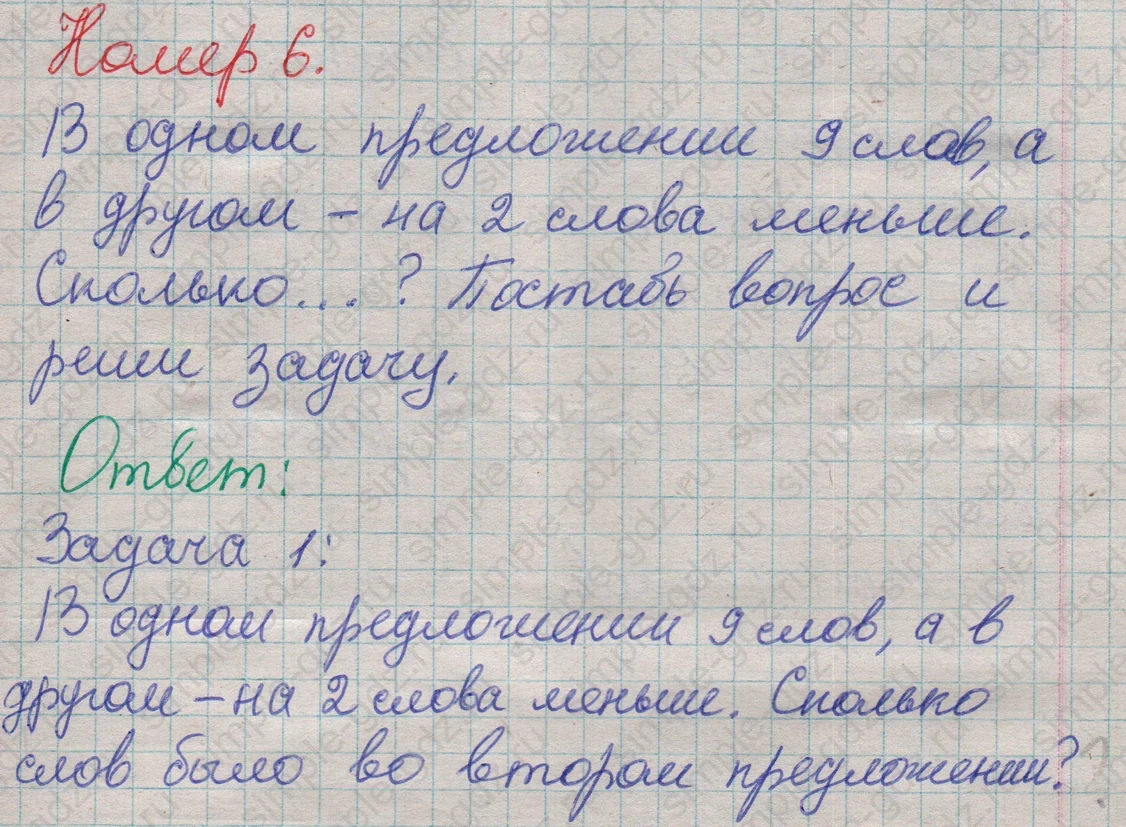 Номер 6.
В одном предложении 9 слов, а
в другом - на 2 слова меньше.
Сколько...? Поставь вопрос и
реши задачу.
Ответ:
Задача 1:
В одном предложении 9 слов, а в
другом - на 2 слова меньше. Сколько
слов было во втором предложении?
simple-gdz.ru